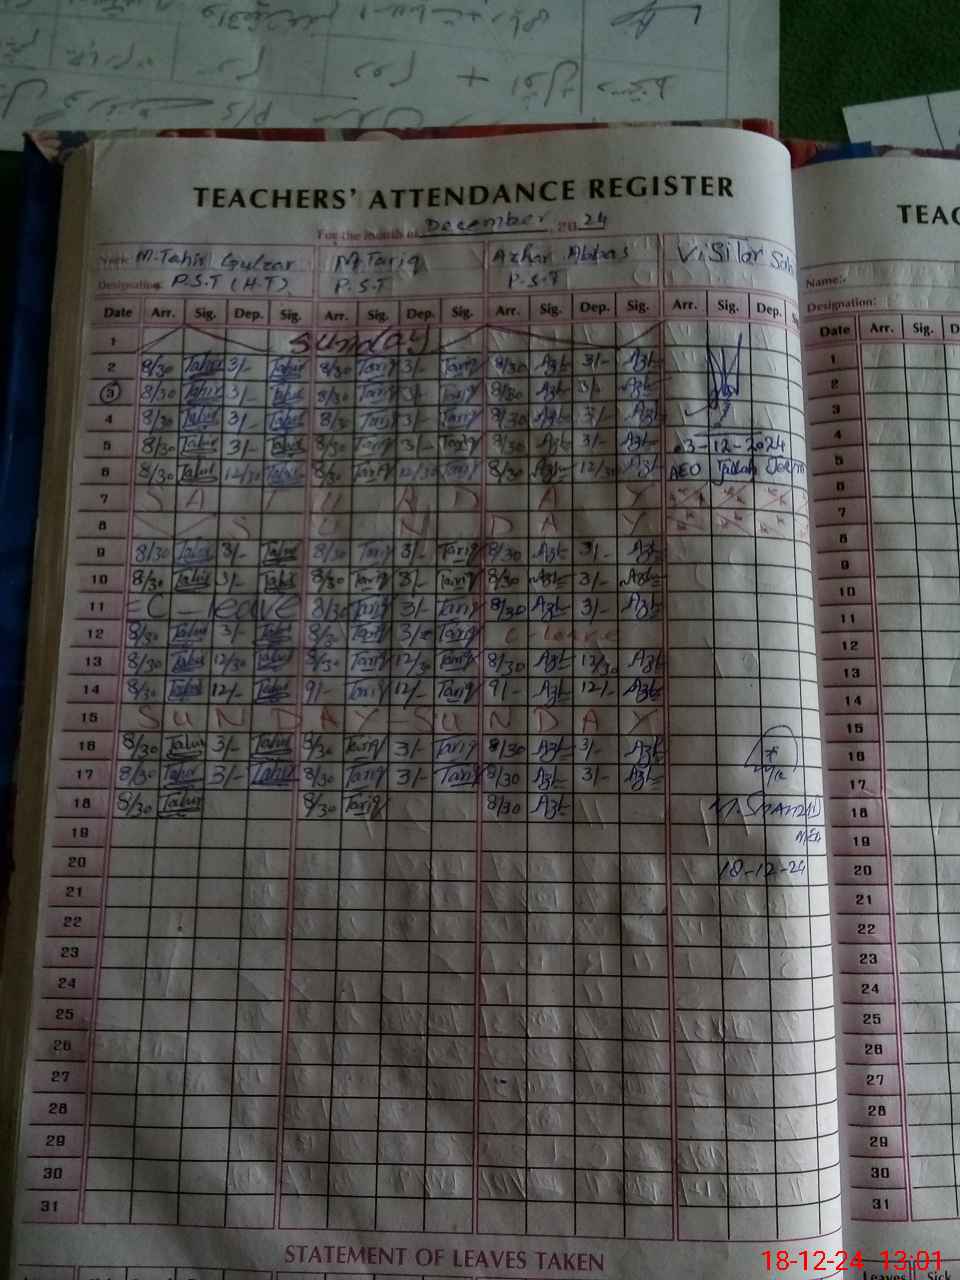 TEACHERS' ATTENDANCE REGISTER
For the month of December, 20 24
Name: M.Tahir Gulzar M.Tariq Azhar Abbas Visitor
Designation: P.S.T (H.T) P.S.T P.S.T
Date Arr. Sig. Dep. Sig. Arr. Sig. Dep. Sig. Arr. Sig. Dep. Sig. Arr. Sig. Dep.
1 Sunday
2 8/30 Tahir 3/- Tahir 8/30 Tariq 3/- Tariq 8/30 Azh 3/- Azh
3 8/30 Tahir 3/- Tahir 8/30 Tariq 3/- Tariq 8/30 Azh 3/- Azh
4 8/30 Tahir 3/- Tahir 8/30 Tariq 3/- Tariq 8/30 Azh 3/- Azh
5 8/30 Tahir 3/- Tahir 8/30 Tariq 3/- Tariq 8/30 Azh 3/- Azh 3-12-2024
6 8/30 Tahir 12/30 Tahir 8/30 Tariq 12/30 Tariq 8/30 Azh 12/30 Azh AEO
7 S A T U R D A Y
8 S U N D A Y
9 8/30 Tahir 3/- Tahir 8/30 Tariq 3/- Tariq 8/30 Azh 3/- Azh
10 8/30 Tahir 3/- Tahir 8/30 Tariq 3/- Tariq 8/30 Azh 3/- Azh
11 - C - leave 8/30 Tariq 3/- Tariq 8/30 Azh 3/- Azh
12 8/30 Tahir 3/- Tahir 8/30 Tariq 3/- Tariq C - leave
13 8/30 Tahir 12/30 Tahir 8/30 Tariq 12/30 Tariq 8/30 Azh 12/30 Azh
14 8/30 Tahir 12/- Tahir 9/- Tariq 12/- Tariq 9/- Azh 12/- Azh
15 S U N D A Y - S U N D A Y
16 8/30 Tahir 3/- Tahir 8/30 Tariq 3/- Tariq 8/30 Azh 3/- Azh
17 8/30 Tahir 3/- Tahir 8/30 Tariq 3/- Tariq 8/30 Azh 3/- Azh
18 8/30 Tahir 8/30 Tariq 8/30 Azh
19 MEA
20 18-12-24
21
22
23
24
25
26
27
28
29
30
31
STATEMENT OF LEAVES TAKEN
TEAC
Name:-
Designation:
Date Arr. Sig.
1
2
3
4
5
6
7
8
9
10
11
12
13
14
15
16
17
18
19
20
21
22
23
24
25
26
27
28
29
30
31
Leaves Sick
18-12-24 13:01